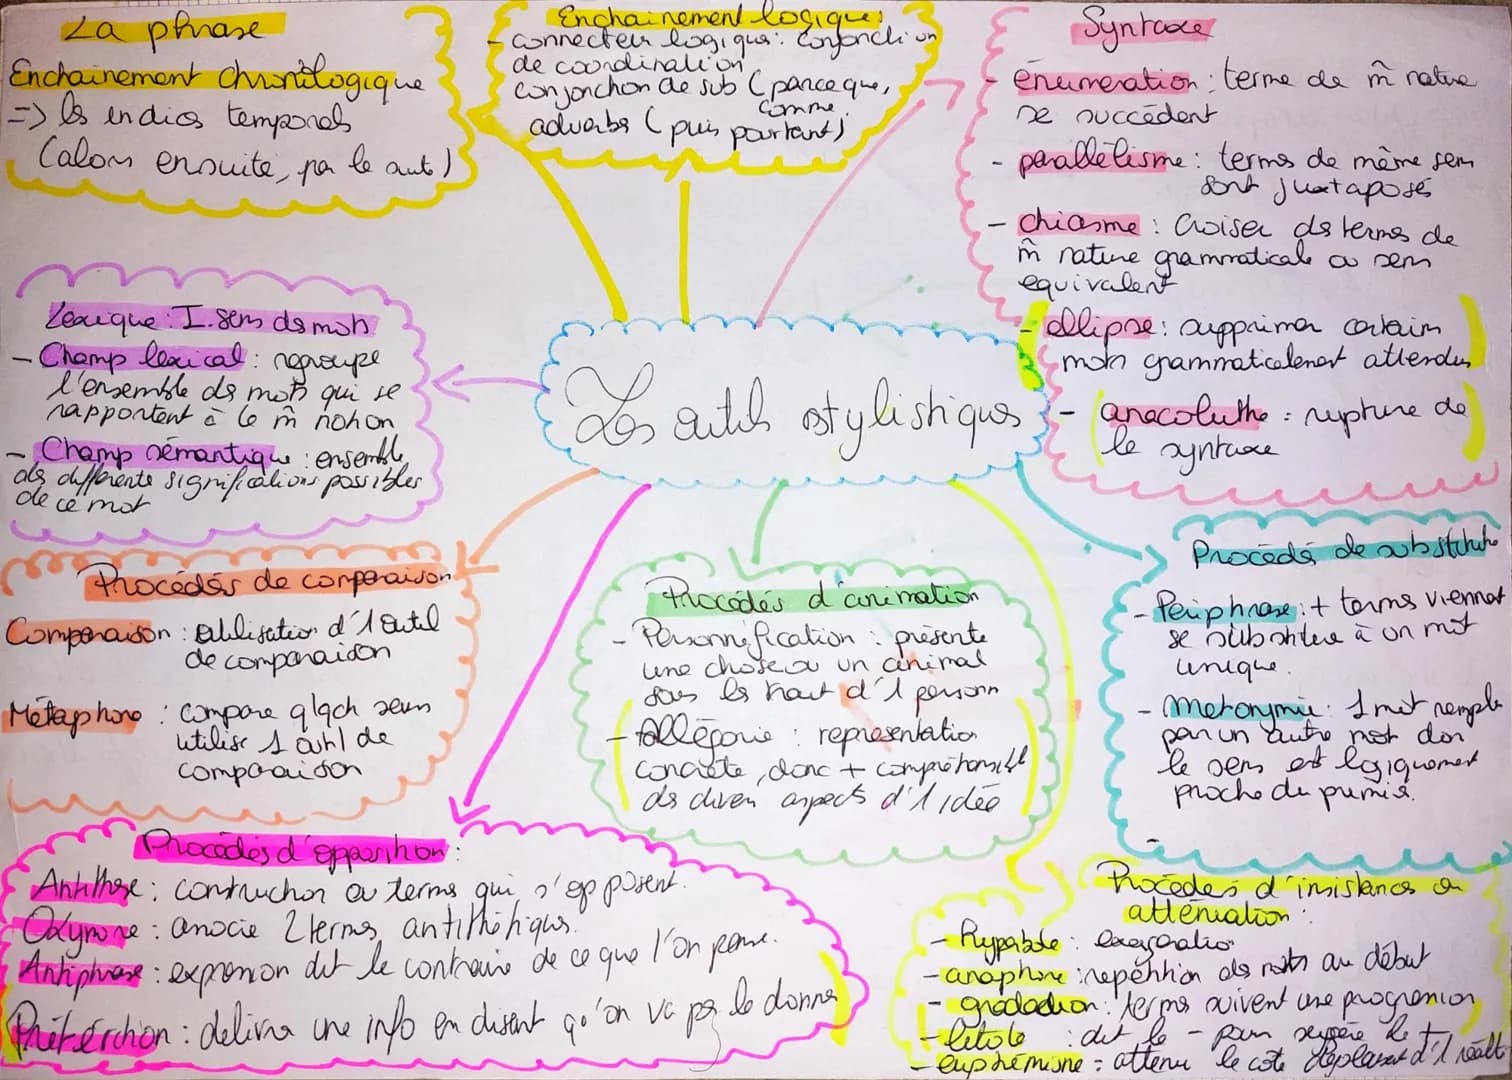 La phrase
Enchainement chronologique
=> ls indics temporals
(alors ensuite, par la suite)
Enchainement logique:
- connecteur logique: conjonction
de coordination
conjonction de sub (parceque,
comme
adverbs (puis pourtant)
Syntaxe
- énumération: terme de m̂ nature
se succèdent
- parallélisme: terms de même sens
sont juxtaposés
- chiasme: croiser ds termes de
m̂ nature grammaticale ou sens
equivalent
- ellipse: supprimer certains
mots grammaticalement attendus
- anacoluthe = rupture de
la syntaxe
Lexique: I. sens ds mots
- Champ lexical: regroupe
l'ensemble ds mots qui se
rapportent à la m̂ notion
- Champ sémantique: ensemble
ds différente significations possibles
de ce mot
Les outils stylistiques
Procédés de comparaison
Comparaison: utilisation d'1 outil
de comparaison
Métaphore: compare qlqch sans
utilise 1 outil de
comparaison
Procédés d'animation
- Personnification: présente
une chose ou un animal
sous ls trait d'1 personn
- Allégorie: représentation
concrète, donc + compréhensibl
ds divers aspects d'1 idée
Procédé de substitutio
- Périphrase: + terms viennet
se substitue à un mot
unique.
- métonymie: 1 mot remplc
par un autre mot don
le sens est logiquement
proche du premier.
-
Procédés d'opposition:
Antithèse: construction ou terms qui s'opposent.
Oxymore: associe 2 terms antithétiqus.
Antiphrase: expression dit le contraire de ce que l'on pense.
Prétérition: délivre une info en disant qu'on va pas la donner
Procédés d'insistance ou
atténuation:
- Hyperbole: exagération
- anaphore: répétition ds mots au début
- gradation: terms suivent une progression
- litote: dit le - pour suggère le +
- euphémisme = atténu le côté déplaisant d'1 réalt